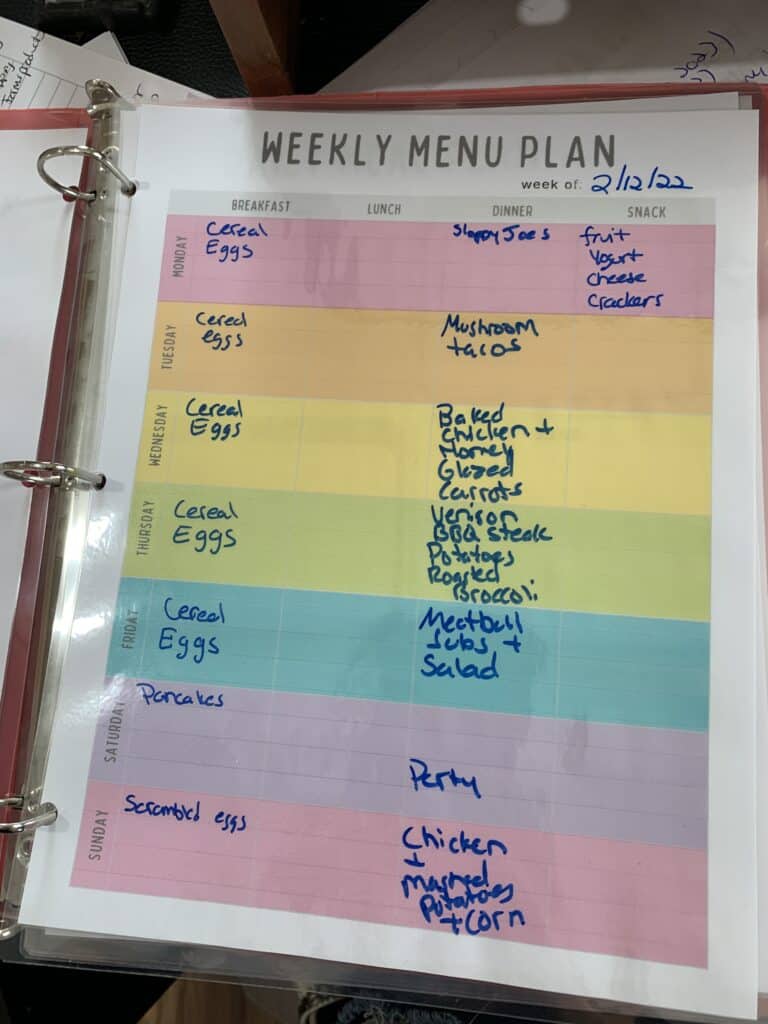 WEEKLY MENU PLAN
week of: 2/12/22
BREAKFAST LUNCH DINNER SNACK
MONDAY
Cereal
Eggs
Sloppy Joes
fruit
Yogurt
Cheese
Crackers
TUESDAY
Cereal
eggs
Mushroom
tacos
WEDNESDAY
Cereal
Eggs
Baked
Chicken +
Honey
Glazed
Carrots
THURSDAY
Cereal
Eggs
Venison
BBQ Steak
Potatoes
Roasted
Broccoli
FRIDAY
Cereal
Eggs
Meatball
Subs +
Salad
SATURDAY
Pancakes
Party
SUNDAY
Scrambled eggs
Chicken
+
Mashed
Potatoes
+ Corn